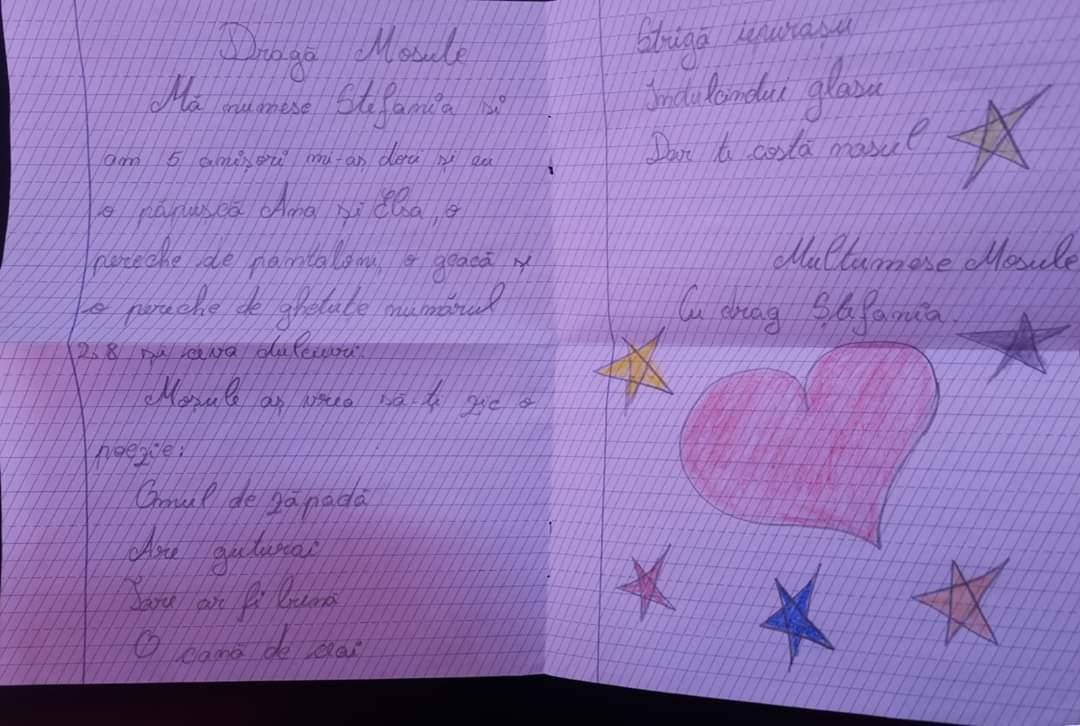 Dragă Mosule
Mă numesc Stefania si
am 5 anișori mi-aș dori și eu
o păpușcă Ana și Elsa, o
pereche de pantaloni, o geacă și
o pereche de ghetute numărul
28 și ceva dulciuri.
Moșule aș vrea să-ți zic o
poezie:
Omul de zăpadă
Are guturai
Tare ar fi bună
O cană de ceai
Strigă iepurașu
Indulcindui glasu
Dar te costă nasul
Multumesc Mosule
Cu drag Ștefania.